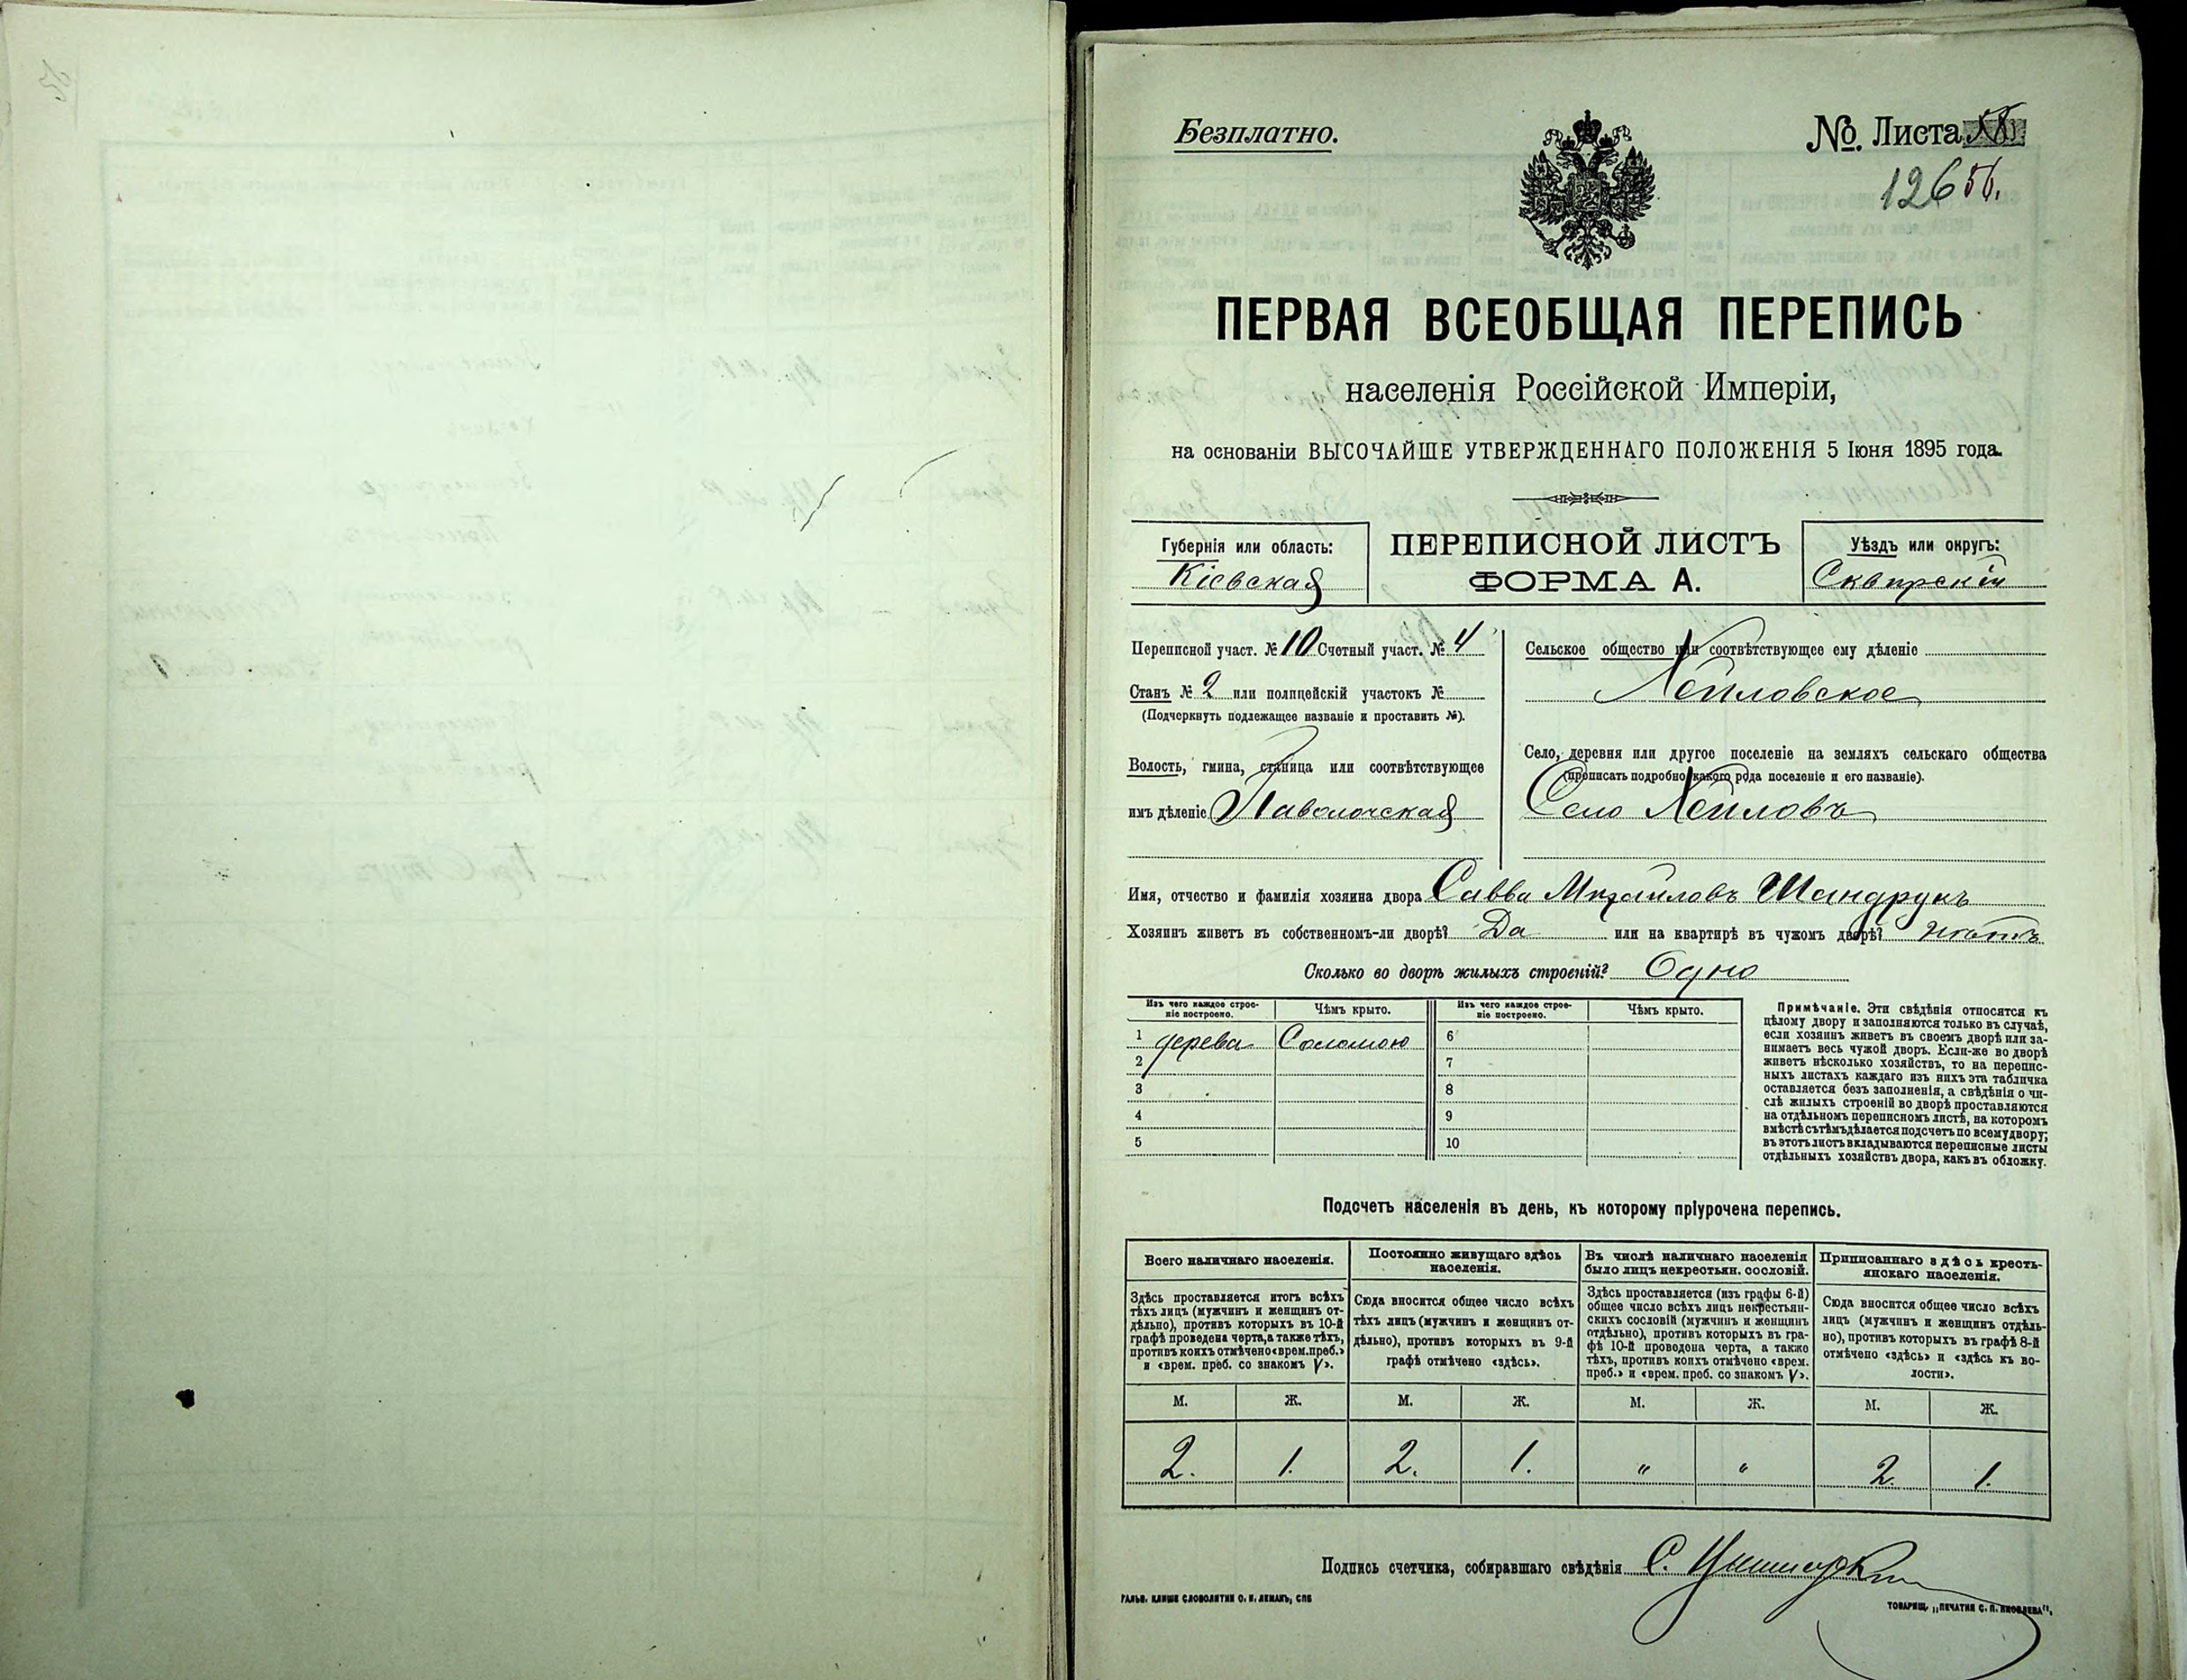 Безплатно.
№. Листа
126 56.
ПЕРВАЯ ВСЕОБЩАЯ ПЕРЕПИСЬ
населенія Россійской Имперіи,
на основаніи ВЫСОЧАЙШЕ УТВЕРЖДЕННАГО ПОЛОЖЕНІЯ 5 Іюня 1895 года.
Губернія или область:
Кіевская
ПЕРЕПИСНОЙ ЛИСТЪ
ФОРМА А.
Уѣздъ или округъ:
Сквирскій
Переписной участ. № 10 Счетный участ. № 4
Станъ № 2 или полицейскій участокъ №
(Подчеркнуть подлежащее названіе и проставить №).
Волость, гмина, станица или соотвѣтствующее
имъ дѣленіе Паволочская
Сельское общество или соотвѣтствующее ему дѣленіе
Хейловское
Село, деревня или другое поселеніе на земляхъ сельскаго общества
(прописать подробно какого рода поселеніе и его названіе).
Село Хейловъ
Имя, отчество и фамилія хозяина двора Савва Михайловъ Шандрукъ
Хозяинъ живетъ въ собственномъ-ли дворѣ? Да или на квартирѣ въ чужомъ дворѣ? нѣтъ
Сколько во дворѣ жилыхъ строеній? Одно
Изъ чего каждое строе-
ніе построено.
Чѣмъ крыто.
Изъ чего каждое строе-
ніе построено.
Чѣмъ крыто.
1 дерева Соломою 6
2 7
3 8
4 9
5 10
Примѣчаніе. Эти свѣдѣнія относятся къ
цѣлому двору и заполняются только въ случаѣ,
если хозяинъ живетъ въ своемъ дворѣ или за-
нимаетъ весь чужой дворъ. Если-же во дворѣ
живетъ нѣсколько хозяйствъ, то на перепис-
ныхъ листахъ каждаго изъ нихъ эта табличка
оставляется безъ заполненія, а свѣдѣнія о чи-
слѣ жилыхъ строеній во дворѣ проставляются
на отдѣльномъ переписномъ листѣ, на которомъ
вмѣстѣ съ тѣмъ дѣлается подсчетъ по всему двору;
въ этотъ листъ вкладываются переписные листы
отдѣльныхъ хозяйствъ двора, какъ въ обложку.
Подсчетъ населенія въ день, къ которому пріурочена перепись.
Всего наличнаго населенія.
Здѣсь проставляется итогъ всѣхъ
тѣхъ лицъ (мужчинъ и женщинъ от-
дѣльно), противъ которыхъ въ 10-й
графѣ проведена черта, а также тѣхъ,
противъ коихъ отмѣчено «врем. преб.»
и «врем. преб. со знакомъ V».
Постоянно живущаго здѣсь
населенія.
Сюда вносится общее число всѣхъ
тѣхъ лицъ (мужчинъ и женщинъ от-
дѣльно), противъ которыхъ въ 9-й
графѣ отмѣчено «здѣсь».
Въ числѣ наличнаго населенія
было лицъ некрестьян. сословій.
Здѣсь проставляется (изъ графы 6-й)
общее число всѣхъ лицъ некрестьян-
скихъ сословій (мужчинъ и женщинъ
отдѣльно), противъ которыхъ въ гра-
фѣ 10-й проведена черта, а также
тѣхъ, противъ коихъ отмѣчено «врем.
преб.» и «врем. преб. со знакомъ V».
Приписаннаго здѣсь кресть-
янскаго населенія.
Сюда вносится общее число всѣхъ
лицъ (мужчинъ и женщинъ отдѣль-
но), противъ которыхъ въ графѣ 8-й
отмѣчено «здѣсь» и «здѣсь къ во-
лости».
М. Ж. М. Ж. М. Ж. М. Ж.
2. 1. 2. 1. " " 2. 1.
Подпись счетчика, собиравшаго свѣдѣнія С.
ГАЛЬВ. КЛИШЕ СЛОВОЛИТНИ О. И. ЛЕМАНЪ, СПБ
ТОВАРИЩ. „ПЕЧАТНЯ С. П. ЯКОВЛЕВА".